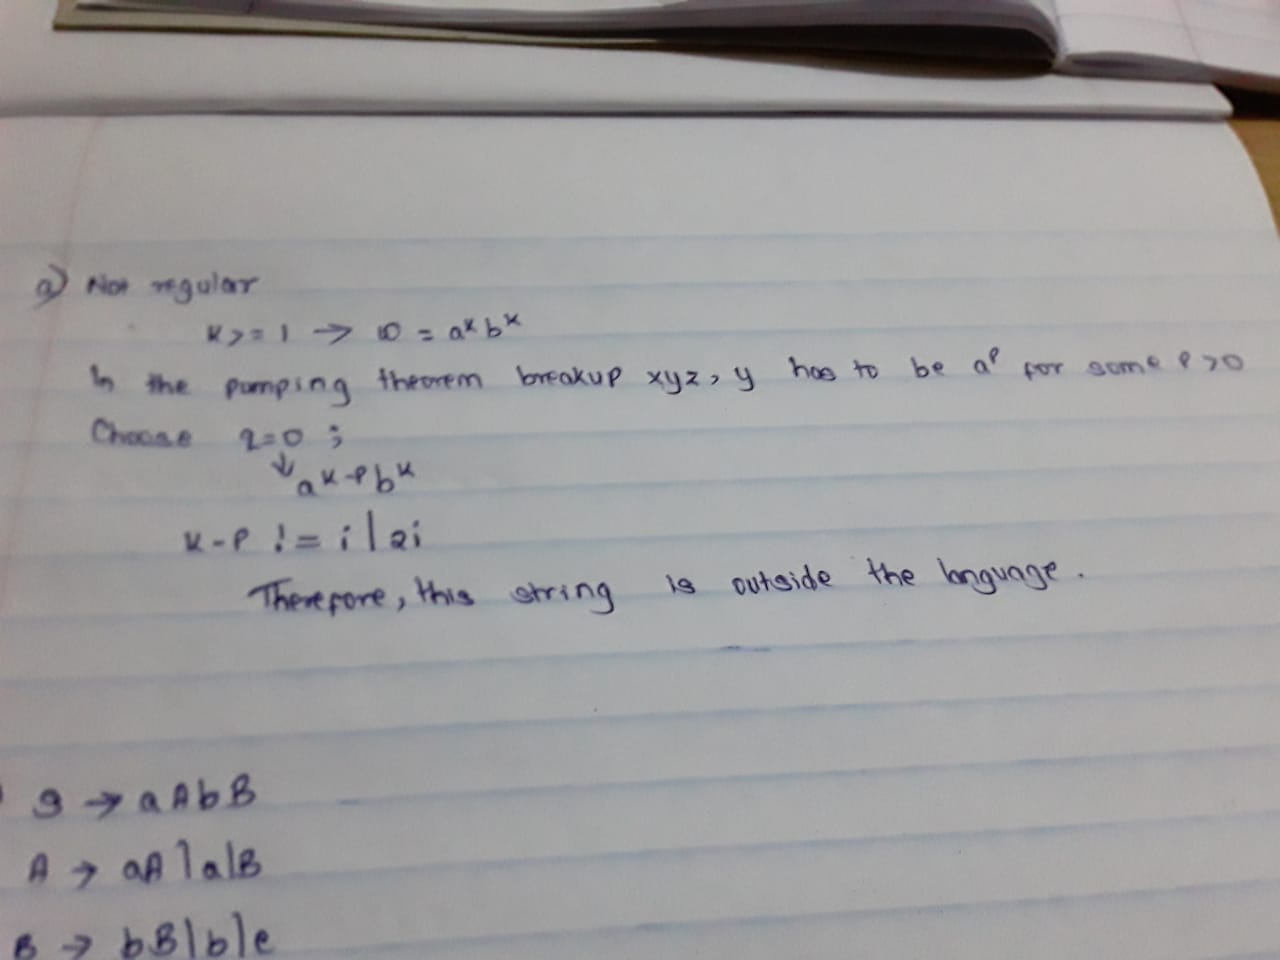 a) Not regular
k >= 1 → w = a^k b^k
In the pumping theorem breakup xyz, y has to be a^p for some p > 0
Choose q = 0 ;
↓ a^k-p b^k
k - p != i | 2i
Therefore, this string is outside the language.
S → aAbB
A → aA | a | B
B → bB | b | e